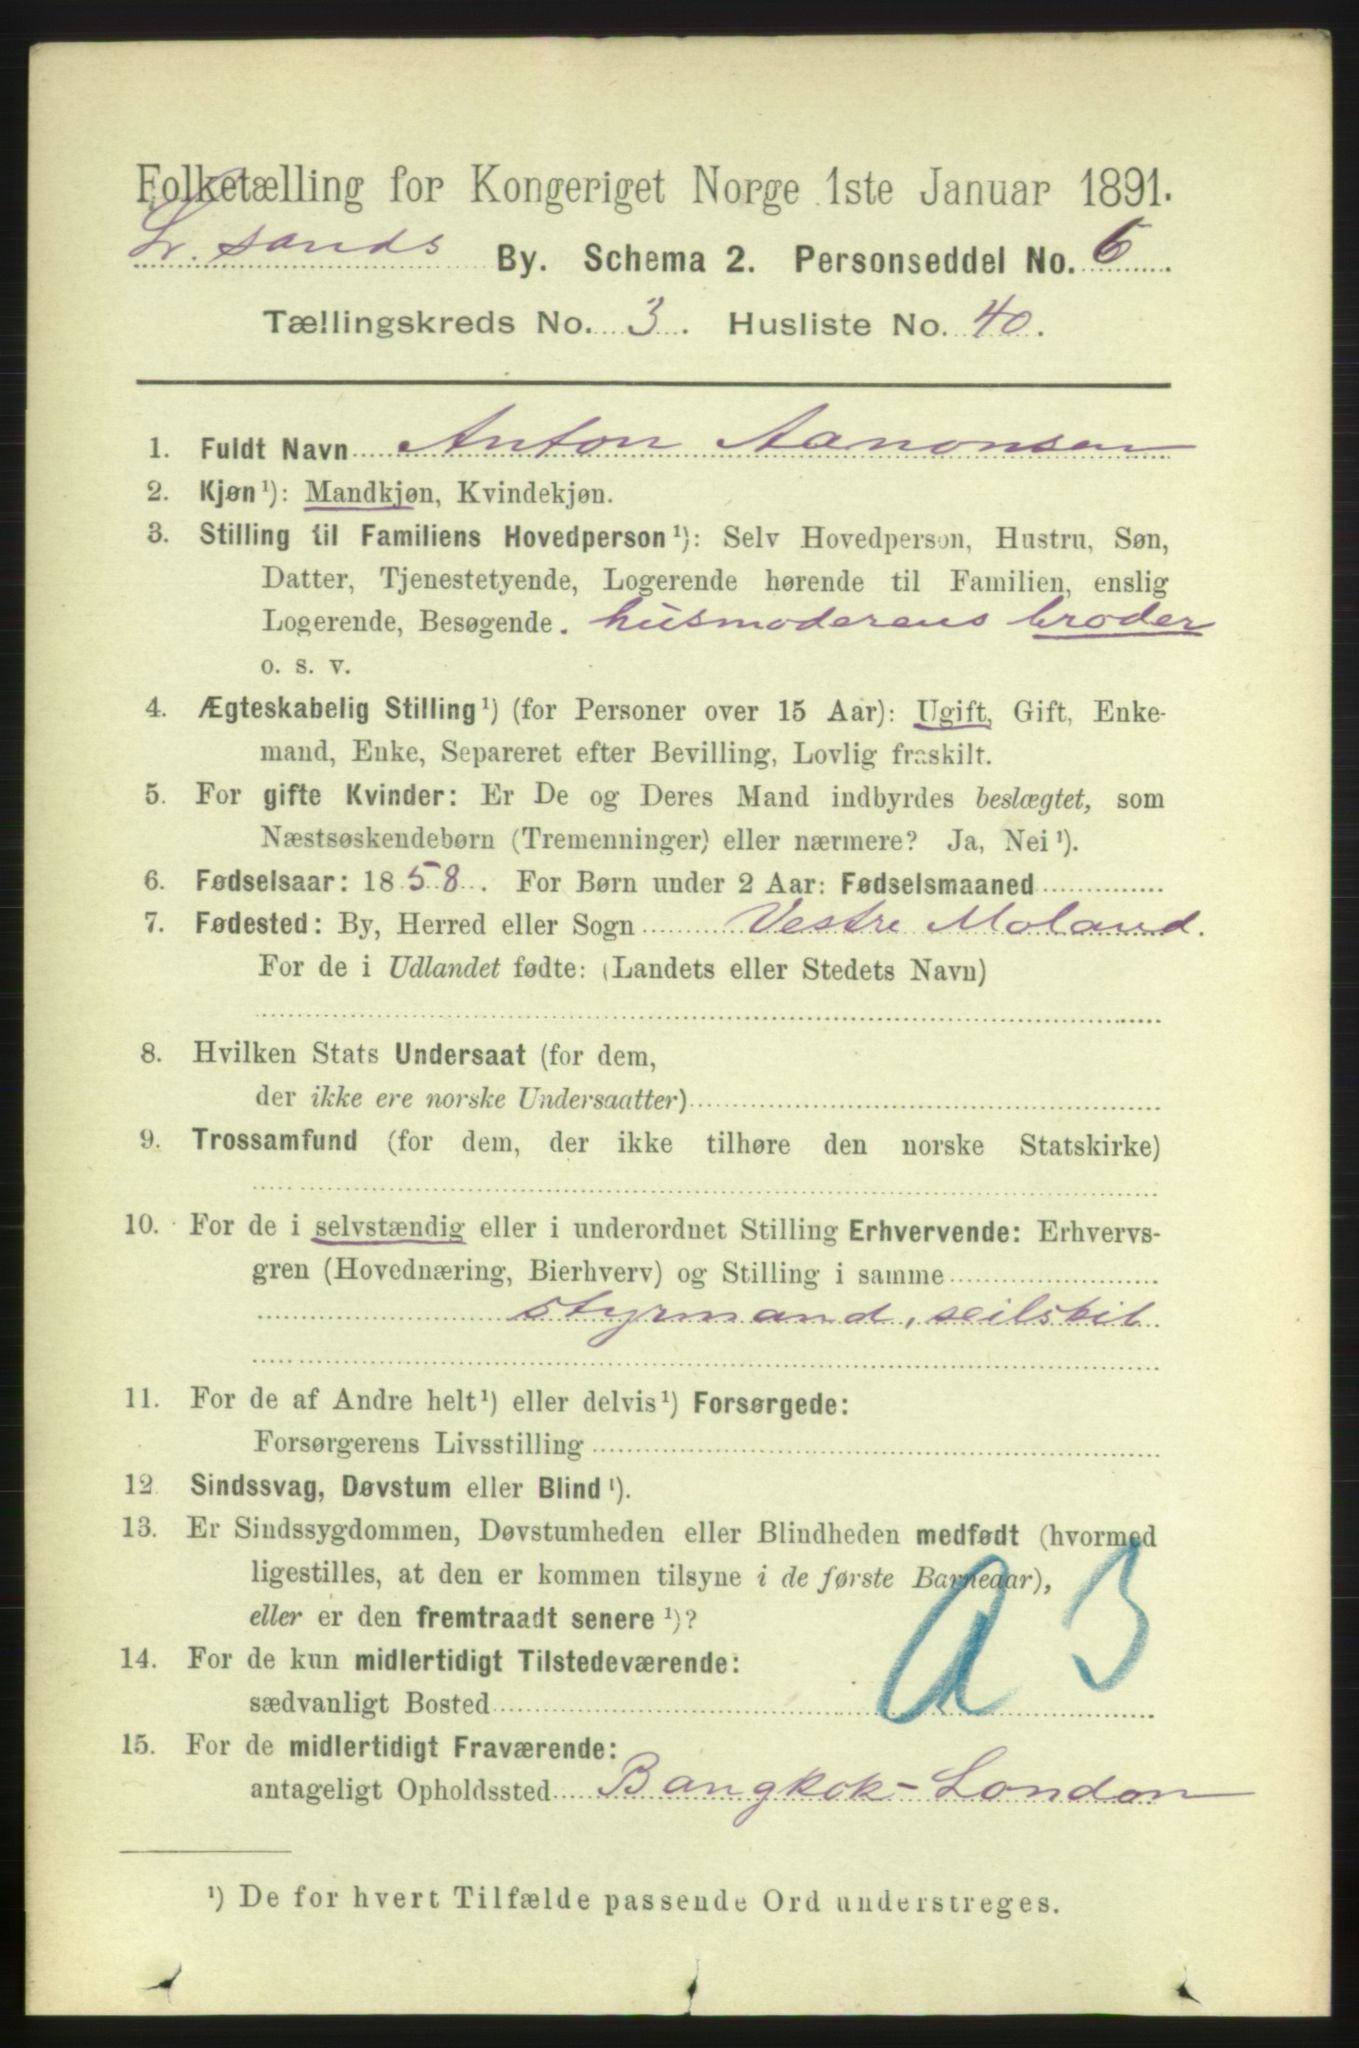 Folketælling for Kongeriget Norge 1ste Januar 1891.
L. sands By. Schema 2. Personseddel No. 6
Tællingskreds No. 3. Husliste No. 40.
1. Fuldt Navn Anton Aanonsen
2. Kjøn¹): Mandkjøn, Kvindekjøn.
3. Stilling til Familiens Hovedperson¹): Selv Hovedperson, Hustru, Søn,
Datter, Tjenestetyende, Logerende hørende til Familien, enslig
Logerende, Besøgende. husmoderens broder
o. s. v.
4. Ægteskabelig Stilling¹) (for Personer over 15 Aar): Ugift, Gift, Enke-
mand, Enke, Separeret efter Bevilling, Lovlig fraskilt.
5. For gifte Kvinder: Er De og Deres Mand indbyrdes beslægtet, som
Næstsøskendebørn (Tremenninger) eller nærmere? Ja, Nei¹).
6. Fødselsaar: 1858. For Børn under 2 Aar: Fødselsmaaned
7. Fødested: By, Herred eller Sogn Vestre Moland.
For de i Udlandet fødte: (Landets eller Stedets Navn)
8. Hvilken Stats Undersaat (for dem,
der ikke ere norske Undersaatter)
9. Trossamfund (for dem, der ikke tilhøre den norske Statskirke)
10. For de i selvstændig eller i underordnet Stilling Erhvervende: Erhvervs-
gren (Hovednæring, Bierhverv) og Stilling i samme
styrmand, seilskib
11. For de af Andre helt¹) eller delvis¹) Forsørgede:
Forsørgerens Livsstilling
12. Sindssvag, Døvstum eller Blind¹).
13. Er Sindssygdommen, Døvstumheden eller Blindheden medfødt (hvormed
ligestilles, at den er kommen tilsyne i de første Barneaar),
eller er den fremtraadt senere¹)?
14. For de kun midlertidigt Tilstedeværende:
sædvanligt Bosted
15. For de midlertidigt Fraværende:
antageligt Opholdssted Bangkok-London
¹) De for hvert Tilfælde passende Ord understreges.